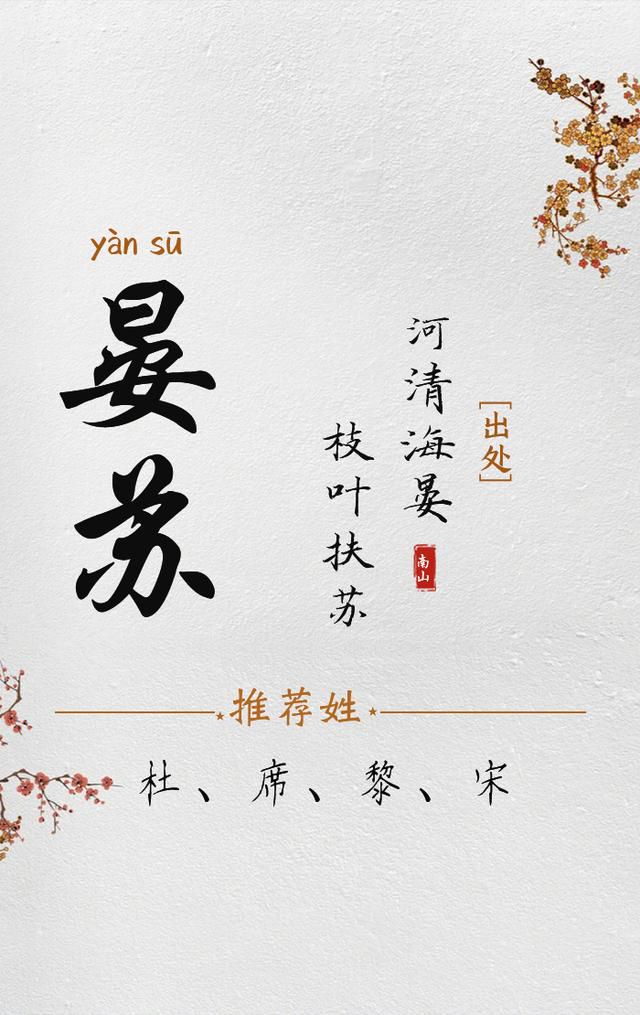 yàn sū
晏苏
[出处]
河清海晏
枝叶扶苏
南山
推荐姓
杜、席、黎、宋